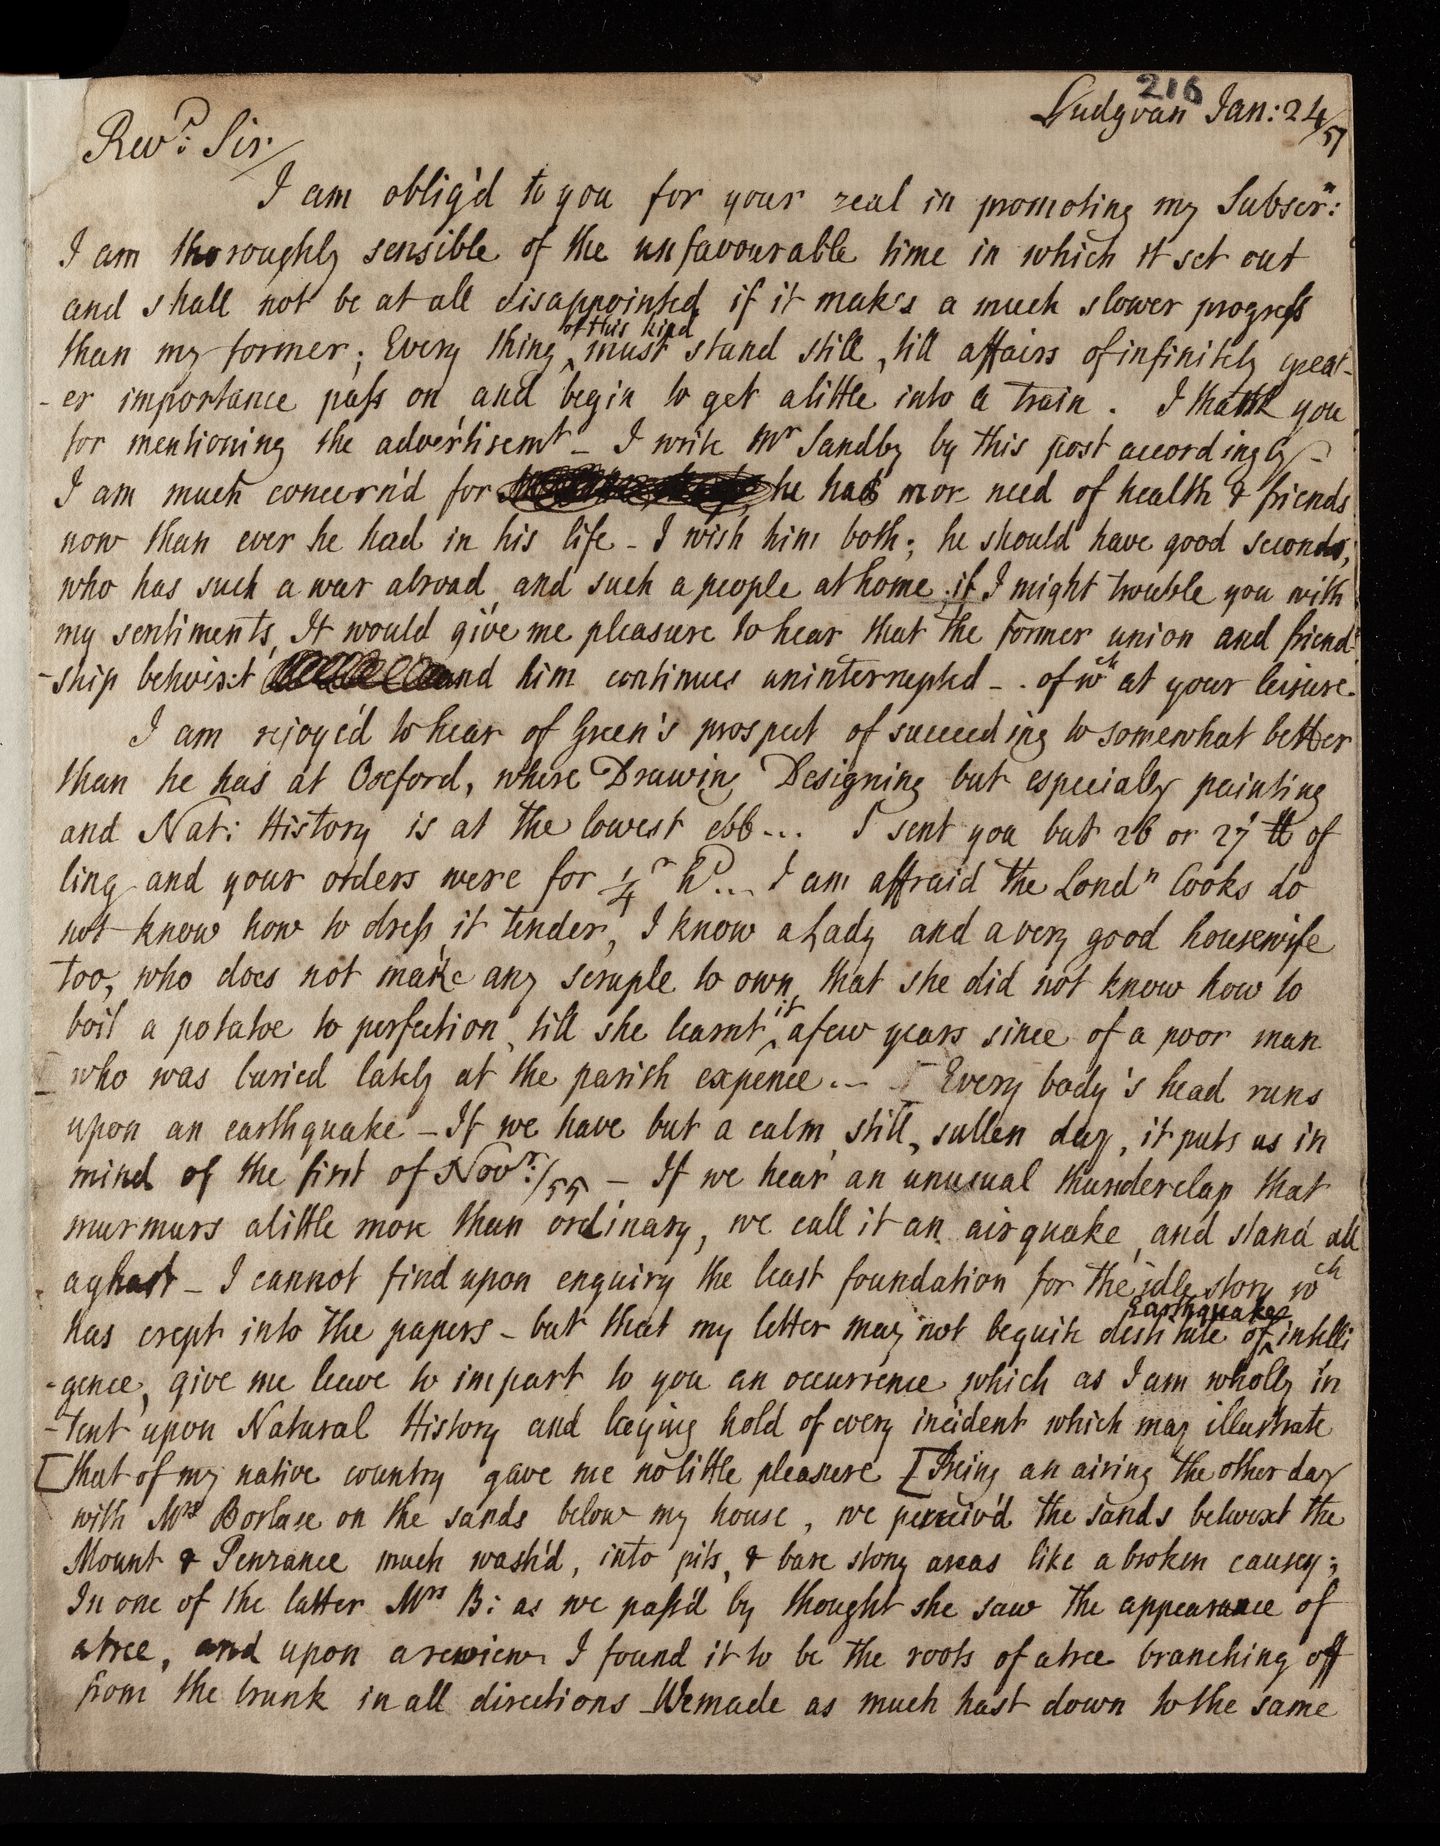 216
Ludgvan Jan: 24/57
Revd: Sir
I am oblig'd to you for your zeal in promoting my Subscrn:
I am thoroughly sensible of the unfavourable time in which it set out
and shall not be at all disappointed if it makes a much slower progress
than my former; Every thing of this kind must stand still, till affairs of infinitely great-
-er importance pass on and begin to get a little into a train. I thank you
for mentioning the advertisemt - I write Mr Sandby by this post accordingly -
I am much concern'd for he has more need of health & friends
now than ever he had in his life - I wish him both; he should have good seconds,
who has such a war abroad, and such a people at home. if I might trouble you with
my sentiments, It would give me pleasure to hear that the former union and friend-
-ship betwixt and him continues uninterrupted - . of wch at your leisure.
I am rejoyc'd to hear of Green's prospect of succeeding to somewhat better
than he has at Oxford, where Drawing Designing but especially painting
and Nat: History is at the lowest ebb... I sent you but 26 or 27 lb of
ling and your orders were for 1/4r hd... I am affraid the Londn Cooks do
not know how to dress it tender, I know a Lady and a very good housewife
too, who does not make any scruple to own, that she did not know how to
boil a potatoe to perfection, till she learnt it a few years since of a poor man
who was buried lately at the parish expence. - [Every body's head runs
upon an earthquake - If we have but a calm, still, sullen day, it puts us in
mind of the first of Novr:/55 - If we hear an unusual thunderclap that
murmurs a little more than ordinary, we call it an airquake, and stand all
aghast - I cannot find upon enquiry the least foundation for the idle story wch
has crept into the papers - but that my letter may not be quite destitute of Earthquake intelli
-gence, give me leave to impart to you an occurrence which as I am wholly in
-tent upon Natural History and laying hold of every incident which may illustrate
[that of my native country gave me no little pleasure [Being an airing the other day
with Mrs Borlase on the sands below my house, we perceiv'd the sands betwixt the
Mount & Penzance much wash'd, into pits, & bare stony areas like a broken causey;
In one of the latter Mrs B: as we pass'd by thought she saw the appearance of
a tree, and upon a review I found it to be the roots of a tree branching off
from the trunk in all directions - We made as much hast down to the same